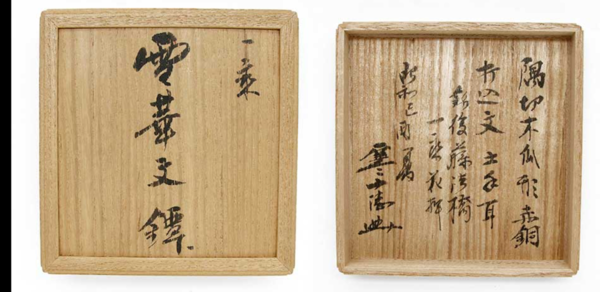 一乗
雪華文鐔
隅切木瓜形赤銅
打込文 土手耳
銘後藤法橋
一乗花押
昭和己酉夏